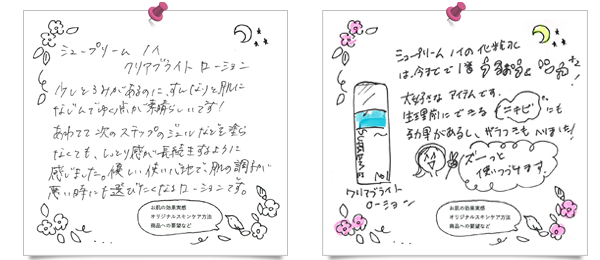 シュープリーム ノイ
クリアブライト ローション
少しとろみがあるのに、すんなりと肌に
なじんでゆく点が素晴らしいです!
あわてて次のステップのジェルなどを塗ら
なくても、しっとり感が長続きするように
感じました。優しい使い心地で、肌の調子が
悪い時にも選びたくなるローションです。
お肌の効果実感
オリジナルスキンケア方法
商品への要望など
シュープリーム ノイの化粧水
は、今までで1番
大好きなアイテムです。
生理前にできる ニキビ にも
効果があるし、ザラつきも へりました!
ずーっと
使いつづけます。
クリアブライト
ローション
お肌の効果実感
オリジナルスキンケア方法
商品への要望など